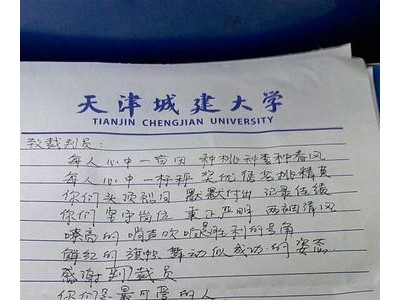 天津城建大学
TIANJIN CHENGJIAN UNIVERSITY
致裁判员：
每人心中一亩田 种桃种李种春风
每人心中一杆秤 奖优惩劣挑精英
你们头顶烈日 默默付出 记录佳绩
你们坚守岗位 更正严明 两袖清风
嘹亮的哨声吹响胜利的号角
鲜红的旗帜舞动似成功的姿态
感谢到裁员
你们是最可爱的人